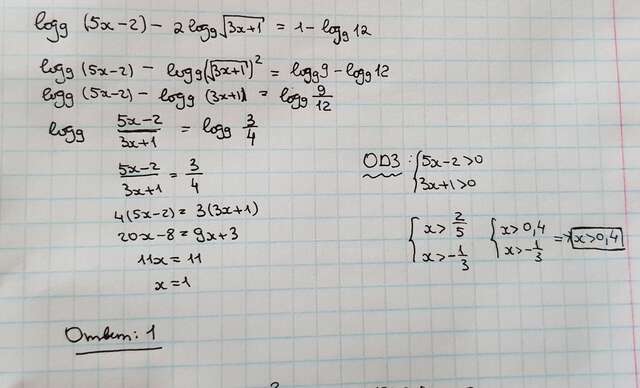 log₉ (5x-2) - 2log₉√(3x+1) = 1 - log₉12
log₉ (5x-2) - log₉(√(3x+1))² = log₉9 - log₉12
log₉ (5x-2) - log₉ (3x+1) = log₉ 9/12
log₉ (5x-2)/(3x+1) = log₉ 3/4
(5x-2)/(3x+1) = 3/4
4(5x-2) = 3(3x+1)
20x-8 = 9x+3
11x = 11
x = 1
ОДЗ: { 5x-2>0
3x+1>0
{ x> 2/5 { x>0,4 => x>0,4
x>-1/3 x>-1/3
Ответ: 1